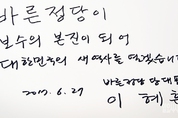 바른정당이
보수의 본진이 되어
대한민국의 새 역사를 열겠습니다
2017. 6. 27
바른정당 당대표
이 혜 훈